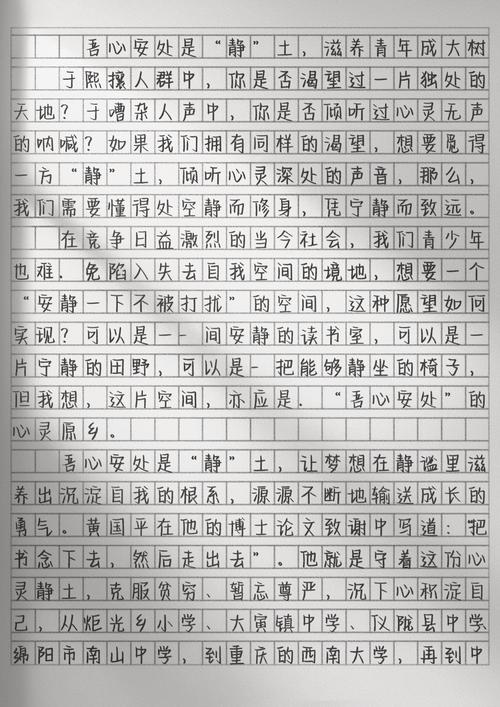 吾心安处是“静”土，滋养青年成大树
于熙攘人群中，你是否渴望过一片独处的
天地？于嘈杂人声中，你是否倾听过心灵无声
的呐喊？如果我们拥有同样的渴望，想要觅得
一方“静”土，倾听心灵深处的声音，那么，
我们需要懂得处空静而修身，凭宁静而致远。
在竞争日益激烈的当今社会，我们青少年
也难．免陷入失去自我空间的境地，想要一个
“安静一下不被打扰”的空间，这种愿望如何
实现？可以是一-间安静的读书室，可以是一
片宁静的田野，可以是-把能够静坐的椅子，
但我想，这片空间，亦应是．“吾心安处”的
心灵原乡。
吾心安处是“静”土，让梦想在静谧里滋
养出沉淀自我的根系，源源不断地输送成长的
勇气。黄国平在他的博士论文致谢中写道：“把
书念下去，然后走出去”。他就是守着这份心
灵静土，克服贫穷、暂忘尊严，沉下心积淀自
己，从炬光乡小学、大寅镇中学、仪陇县中学、
绵阳市南山中学，到重庆的西南大学，再到中